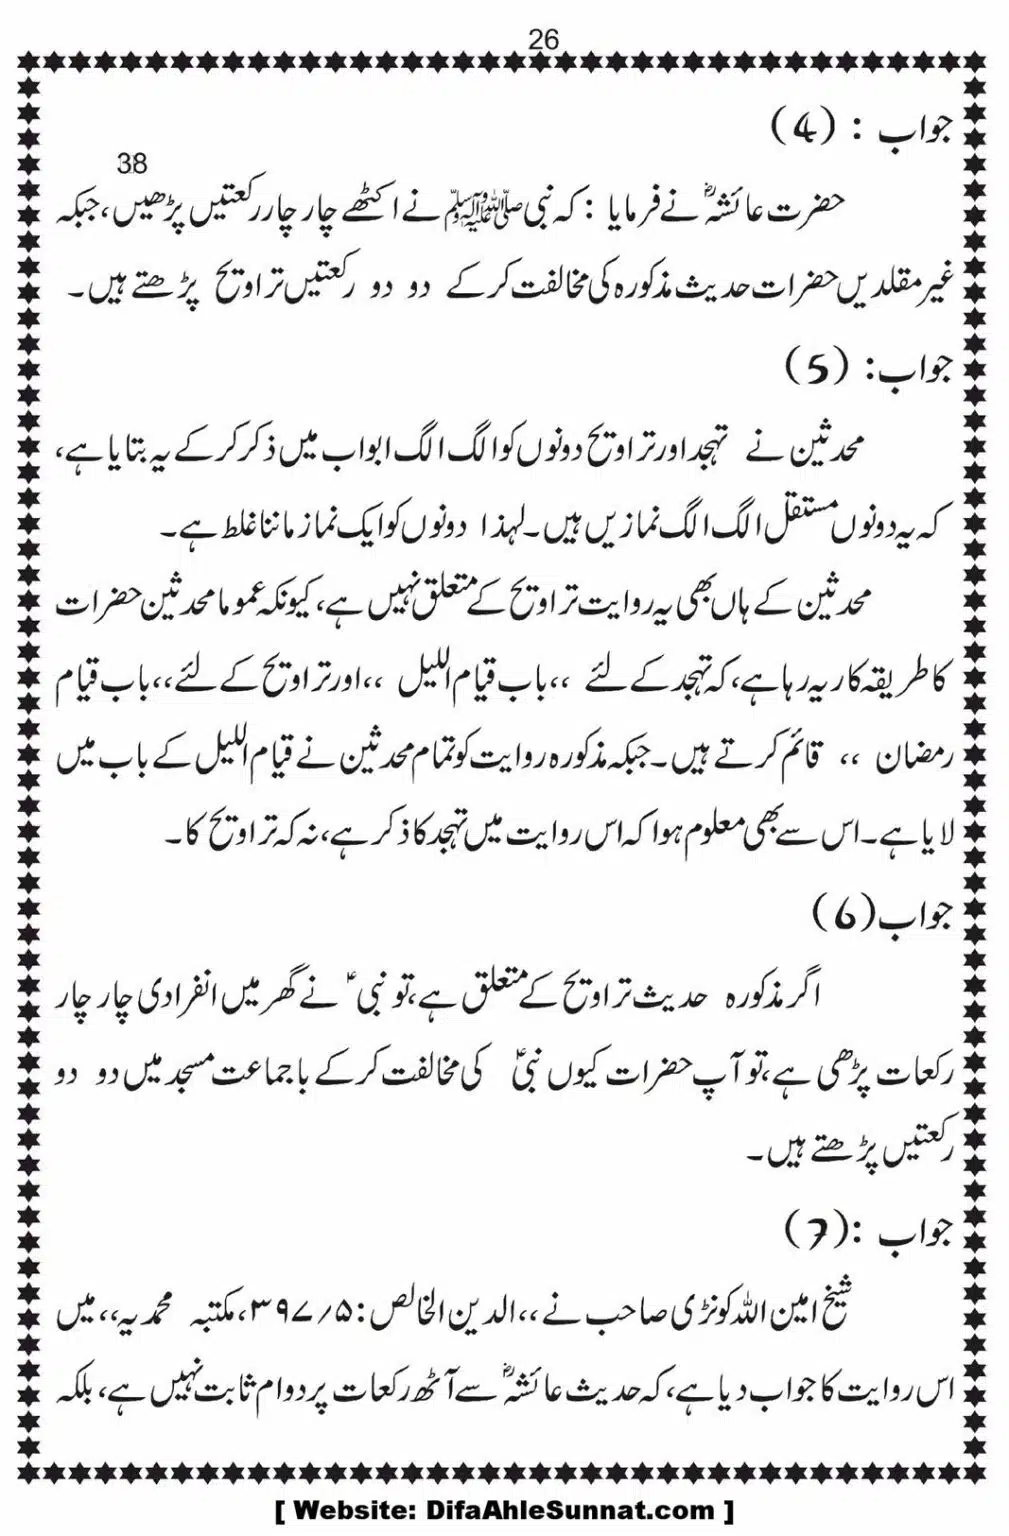 26
جواب : (4)
38
حضرت عائشہؓ نے فرمایا : کہ نبی ﷺ نے اکٹھے چار چار رکعتیں پڑھیں، جبکہ
غیر مقلدیں حضرات حدیث مذکورہ کی مخالفت کر کے دو دو رکعتیں تراویح پڑھتے ہیں۔
جواب: (5)
محدثین نے تہجد اور تراویح دونوں کو الگ الگ ابواب میں ذکر کر کے یہ بتایا ہے،
کہ یہ دونوں مستقل الگ الگ نمازیں ہیں۔ لہذا دونوں کو ایک نماز ماننا غلط ہے۔
محدثین کے ہاں بھی یہ روایت تراویح کے متعلق نہیں ہے، کیونکہ عموما محدثین حضرات
کا طریقہ کار یہ رہا ہے، کہ تہجد کے لئے ،،باب قیام اللیل ،، اور تراویح کے لئے ،،باب قیام
رمضان ،، قائم کرتے ہیں۔ جبکہ مذکورہ روایت کو تمام محدثین نے قیام اللیل کے باب میں
لایا ہے۔ اس سے بھی معلوم ہوا کہ اس روایت میں تہجد کا ذکر ہے، نہ کہ تراویح کا۔
جواب (6)
اگر مذکورہ حدیث تراویح کے متعلق ہے، تو نبی ؑ نے گھر میں انفرادی چار چار
رکعات پڑھی ہے، تو آپ حضرات کیوں نبیؑ کی مخالفت کر کے باجماعت مسجد میں دو دو
رکعتیں پڑھتے ہیں۔
جواب :(7)
شیخ امین اللہ کونڑی صاحب نے ،،الدین الخالص: ۵/۳۹۷، مکتبہ محمدیہ،، میں
اس روایت کا جواب دیا ہے، کہ حدیث عائشہؓ سے آٹھ رکعات پر دوام ثابت نہیں ہے، بلکہ
[ Website: DifaAhleSunnat.com ]